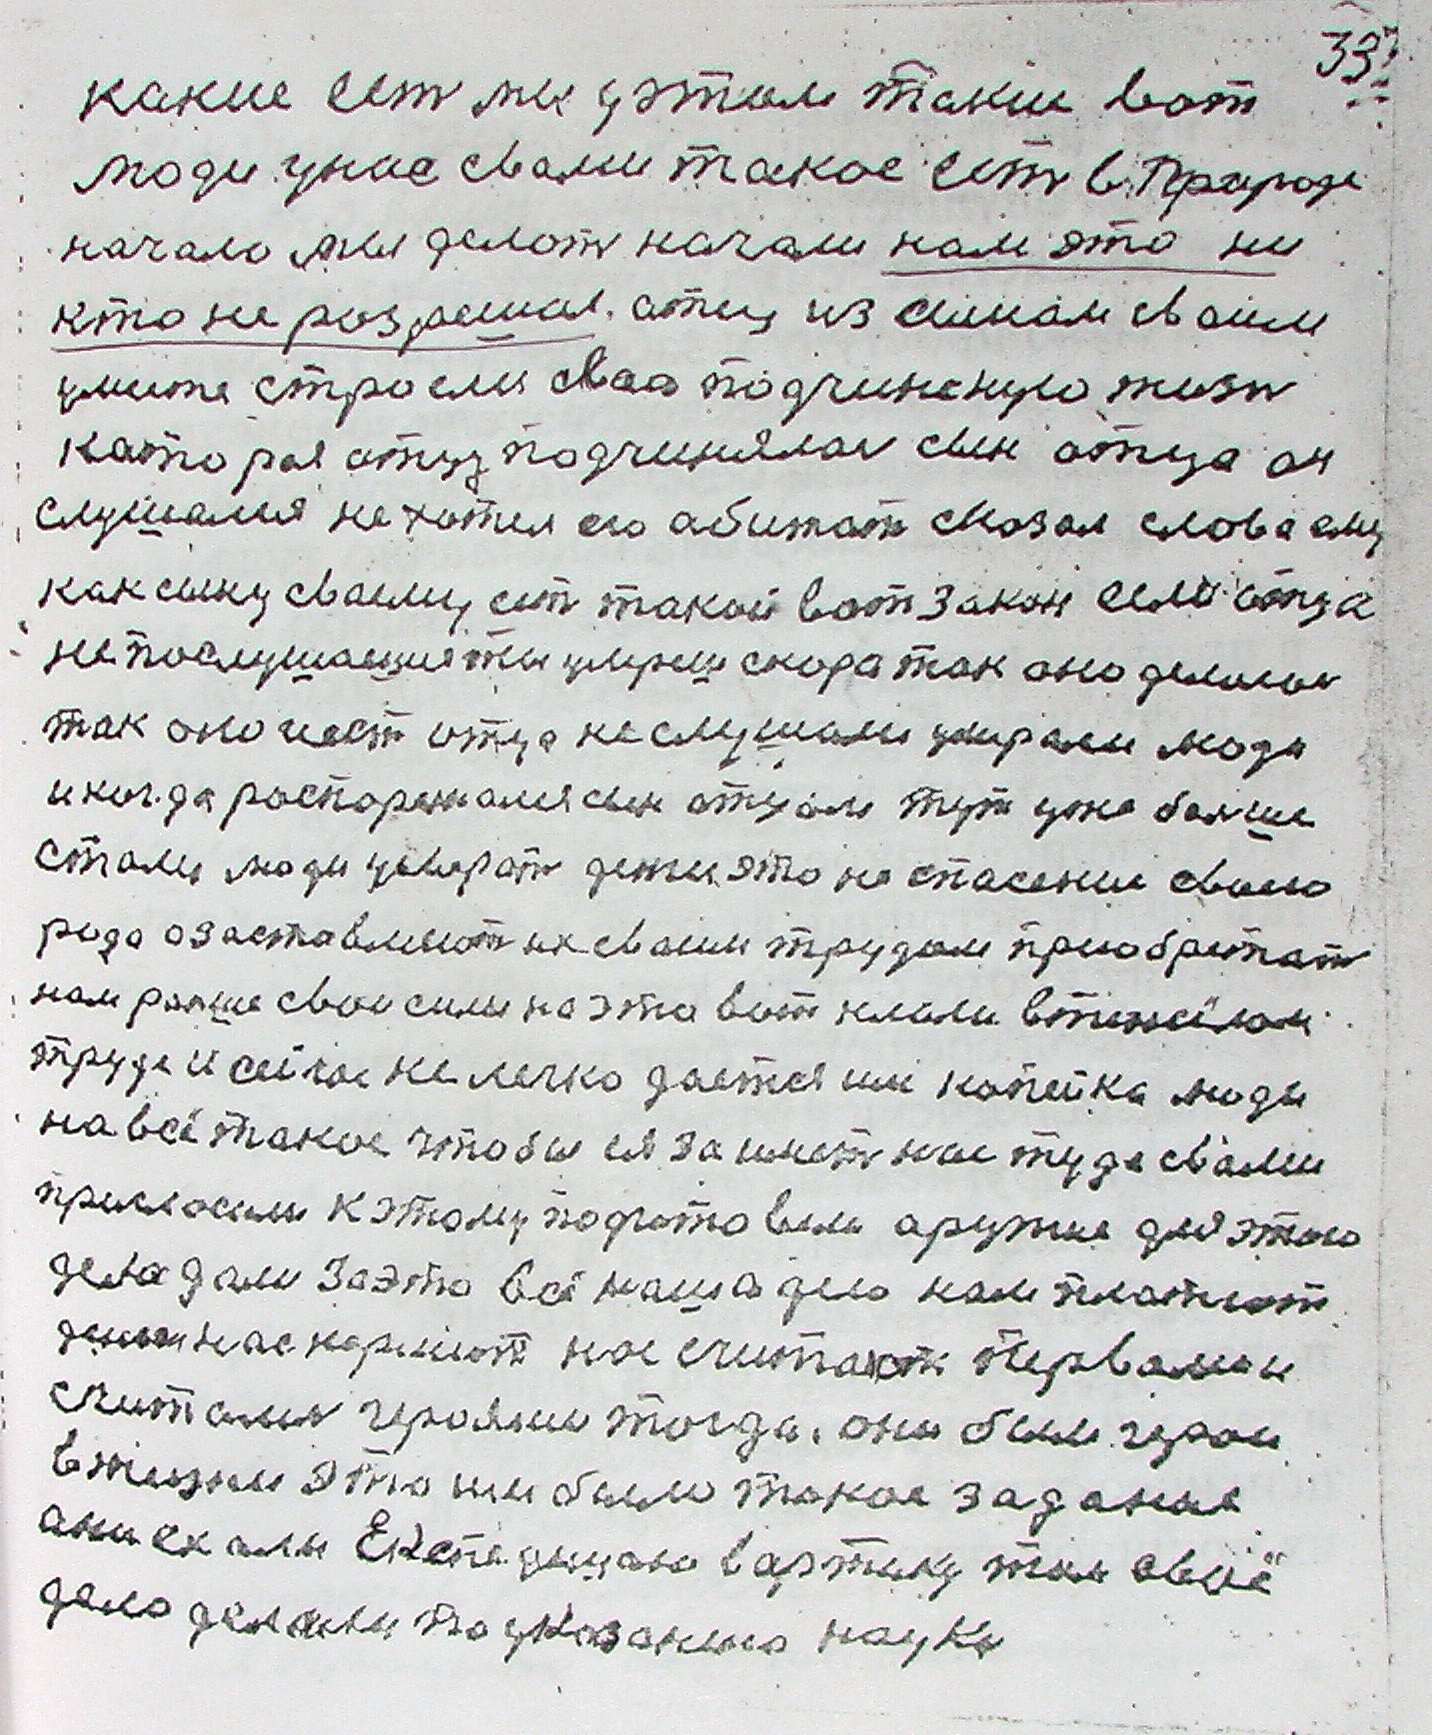 33
какие ест мы у этом такие вот
люди унас свами такое ест в Природе
начало мы делат начали нам это ни
кто не розрешал. отец из сынам своим
умипе строели сваа подчиненую жизн
каторая отцу подчинялас сын отца он
слушалия не хотел его абитат сказал слова ему
как сыну сваему, ест такой вот закон если отца
непослушаешия ти умреш скора так оно делалос
так оно ест отца не слушали умирали люди
и когда роспорежалия сын отцом тут уже болше
стали люди умират денги это не спасение своего
рода а заставляют их своим трудом приобретат
нам ранше свои сили на это вот клали втяжёлом
труде и сейчас не легко дается им копейка люди
на всё такое чтобы ея заимет нас туда свами
пригласили к этому подготовили аружие для этого
дела дали За это всё наша дело нам платют
денги нас кормют нас считают Первами и
считалис героями тогда. они были герои
вжизни это им было такое задание
ани ехали Експедицию вартику там своё
дело делали по указанию науки